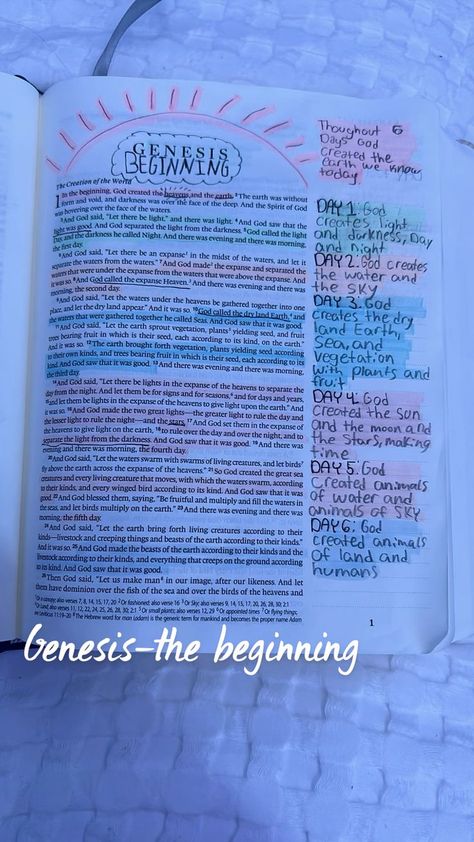 GENESIS
BEGINNING
The Creation of the World
1 In the beginning, God created the heavens and the earth. 2 The earth was without
form and void, and darkness was over the face of the deep. And the Spirit of God
was hovering over the face of the waters.
3 And God said, "Let there be light," and there was light. 4 And God saw that the
light was good. And God separated the light from the darkness. 5 God called the light
Day, and the darkness he called Night. And there was evening and there was morning,
the first day.
6 And God said, "Let there be an expanse1 in the midst of the waters, and let it
separate the waters from the waters." 7 And God made2 the expanse and separated the
waters that were under the expanse from the waters that were above the expanse. And
it was so. 8 And God called the expanse Heaven.3 And there was evening and there was
morning, the second day.
9 And God said, "Let the waters under the heavens be gathered together into one
place, and let the dry land appear." And it was so. 10 God called the dry land Earth,4 and
the waters that were gathered together he called Seas. And God saw that it was good.
11 And God said, "Let the earth sprout vegetation, plants5 yielding seed, and fruit
trees bearing fruit in which is their seed, each according to its kind, on the earth."
And it was so. 12 The earth brought forth vegetation, plants yielding seed according
to their own kinds, and trees bearing fruit in which is their seed, each according to its
kind. And God saw that it was good. 13 And there was evening and there was morning,
the third day.
14 And God said, "Let there be lights in the expanse of the heavens to separate the
day from the night. And let them be for signs and for seasons,6 and for days and years,
15 and let them be lights in the expanse of the heavens to give light upon the earth." And
it was so. 16 And God made the two great lights—the greater light to rule the day and
the lesser light to rule the night—and the stars. 17 And God set them in the expanse of
the heavens to give light on the earth, 18 to rule over the day and over the night, and to
separate the light from the darkness. And God saw that it was good. 19 And there was
evening and there was morning, the fourth day.
20 And God said, "Let the waters swarm with swarms of living creatures, and let birds7
fly above the earth across the expanse of the heavens." 21 So God created the great sea
creatures and every living creature that moves, with which the waters swarm, according
to their kinds, and every winged bird according to its kind. And God saw that it was
good. 22 And God blessed them, saying, "Be fruitful and multiply and fill the waters in
the seas, and let birds multiply on the earth." 23 And there was evening and there was
morning, the fifth day.
24 And God said, "Let the earth bring forth living creatures according to their
kinds—livestock and creeping things and beasts of the earth according to their kinds."
And it was so. 25 And God made the beasts of the earth according to their kinds and the
livestock according to their kinds, and everything that creeps on the ground according
to its kind. And God saw that it was good.
26 Then God said, "Let us make man8 in our image, after our likeness. And let
them have dominion over the fish of the sea and over the birds of the heavens and
1 Or a canopy; also verses 7, 8, 14, 15, 17, 20 2 Or fashioned; also verse 16 3 Or Sky; also verses 9, 14, 15, 17, 20, 26, 28, 30; 2:1
4 Or Land; also verses 11, 12, 22, 24, 25, 26, 28, 30; 2:1 5 Or small plants; also verses 12, 29 6 Or appointed times 7 Or flying things;
see Leviticus 11:19–20 8 The Hebrew word for man (adam) is the generic term for mankind and becomes the proper name Adam
Thoughout 6
Days God
created the
Earth we know
today.
DAY 1: God
creates light
and darkness, Day
and Night
DAY 2: God creates
the water and
the SKY
DAY 3: God
creates the dry
land Earth,
Sea, and
Vegetation
with plants and
fruit
DAY 4: God
Created the Sun
and the moon and
the Stars, making
time
DAY 5: God
Created animals
of water and
animals of SKY
DAY 6: God
created animals
of land and
humans
1
Genesis-the beginning